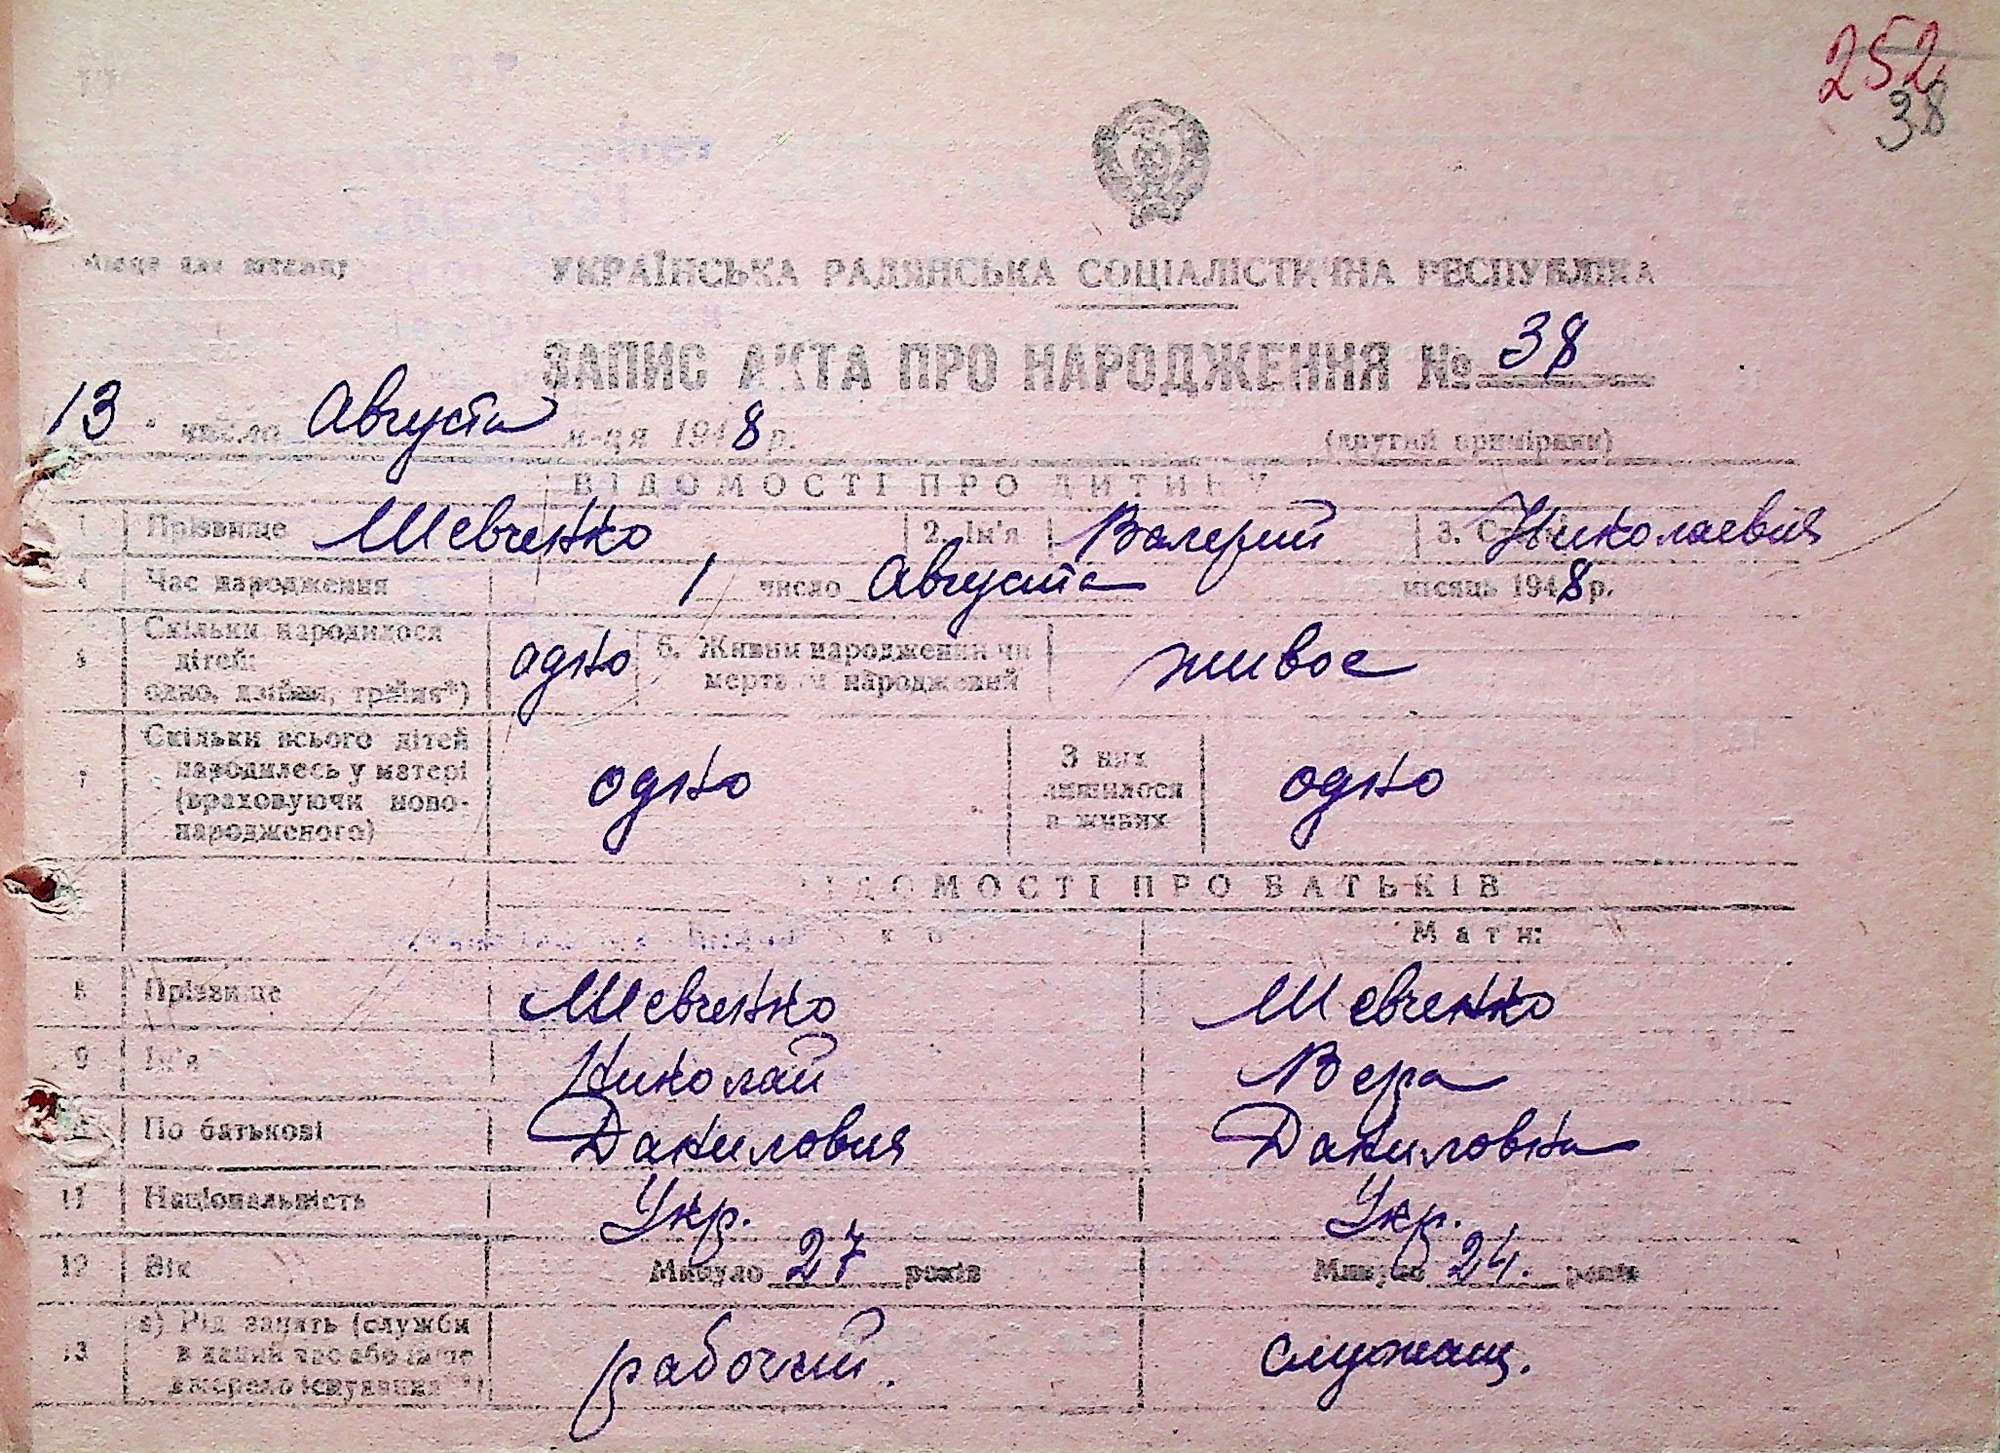 252
38
Місце для штампу
УКРАЇНСЬКА РАДЯНСЬКА СОЦІАЛІСТИЧНА РЕСПУБЛІКА
ЗАПИС АКТА ПРО НАРОДЖЕННЯ № 38
13 число Августа м-ця 1948 р.
(другий примірник)
ВІДОМОСТІ ПРО ДИТИНУ
1 Прізвище Шевченко 2. Ім'я Валерий 3. Николаевич
4 Час народження 1 число Августа місяць 1948 р.
5 Скільки народилося дітей: одно, двійня, трійня*) одно 6. Живим народжений чи мертвим народжений живое
7 Скільки всього дітей народилось у матері (враховуючи новонародженого) одно З них лишилося в живих одно
ВІДОМОСТІ ПРО БАТЬКІВ
Мати:
8 Прізвище Шевченко Шевченко
9 Ім'я Николай Вера
По батькові Данилович Даниловна
11 Національність Укр. Укр.
12 Вік Минуло 27 років Минуло 24. років
13 а) Рід занять (служби в даний час або інше джерело існування**) рабочий. служащ.